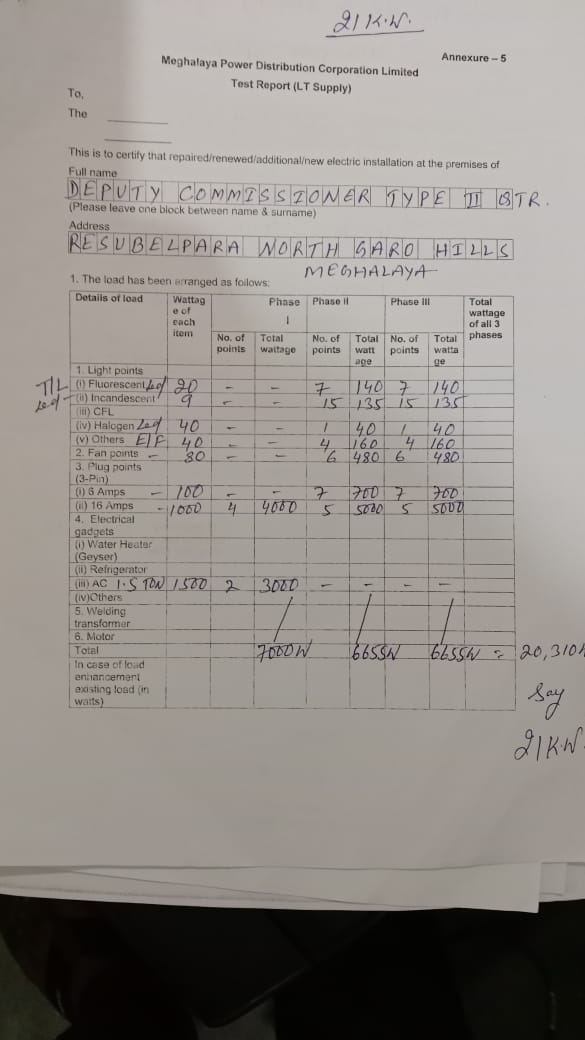 21 K.W.
Annexure – 5
Meghalaya Power Distribution Corporation Limited
Test Report (LT Supply)
To,
The
This is to certify that repaired/renewed/additional/new electric installation at the premises of
Full name
DEPUTY COMMISSIONER TYPE II QTR.
(Please leave one block between name & surname)
Address
RESUBELPARA NORTH GARO HILLS
MEGHALAYA
1. The load has been arranged as follows:
Details of load Wattag e of each item Phase I Phase II Phase III Total wattage of all 3 phases
No. of points Total wattage No. of points Total watt age No. of points Total watta ge
1. Light points
T/L (i) Fluorescent Led 20 - - 7 140 7 140
Led - (ii) Incandescent 9 - - 15 135 15 135
(iii) CFL
(iv) Halogen Led 40 - - 1 40 1 40
(v) Others E/F 40 - - 4 160 4 160
2. Fan points - 80 - - 6 480 6 480
3. Plug points
(3-Pin)
(i) 6 Amps - 100 - - 7 700 7 700
(ii) 16 Amps - 1000 4 4000 5 5000 5 5000
4. Electrical
gadgets
(i) Water Heater
(Geyser)
(ii) Refrigerator
(iii) AC 1.5 TON 1500 2 3000 - - - -
(iv)Others
5. Welding
transformer
6. Motor
Total 7000W 6655W 6655W = 20,310
In case of load
enhancement
existing load (in
watts)
Say
21K.W.